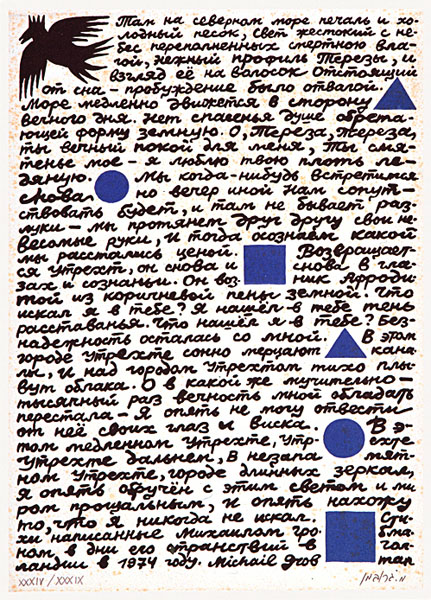 Там на северном море печаль и хо-
лодный песок, свет жестокий с не-
бес переполненных смертною вла-
гой, нежный профиль Терезы, и
взгляд её на волосок отстоящий
от сна – пробуждение было отвагой.
Море медленно движется в сторону
вечного дня. Нет спасенья душе обрета-
ющей форму земную. О, Тереза, Тереза,
ты вечный покой для меня, ты смя-
тенье мое – я люблю твою плоть ле-
дяную. Мы когда-нибудь встретимся
снова но вечер иной нам сопут-
ствовать будет, и там не бывает раз-
луки – мы протянем друг другу свои не-
весомые руки, и тогда осознаем какой
мы расстались ценой. Возвращает-
ся Утрехт, он снова и снова в гла-
зах и сознаньи. Он воз- ник Афроди-
той из коричневой пены земной. Что
искал я в тебе? Я нашёл в тебе тень
расставанья. Что нашёл я в тебе? Без-
надежность осталась со мной. В этом
городе Утрехте сонно мерцают кана-
лы, и над городом Утрехтом тихо плы-
вут облака. О в какой же мучительно-
тысячный раз вечность мной обладать
перестала – Я опять не могу отвести
от неё своих глаз и виска. В э-
том медленном Утрехте, Утр- ехте
Утрехте дальнем, В незапа мят-
ном Утрехте, городе длинных зеркал,
я опять обручён с этим светом и ми-
ром прощальным, и опять нахожу
то, что я никогда не искал. Сти-
хи написанные Михаилом Гро бма-
ном, в дни его странствий в Гол-
ландии в 1974 году. Michail Grob man
XXXIV / XXXIX מ. גרובמן